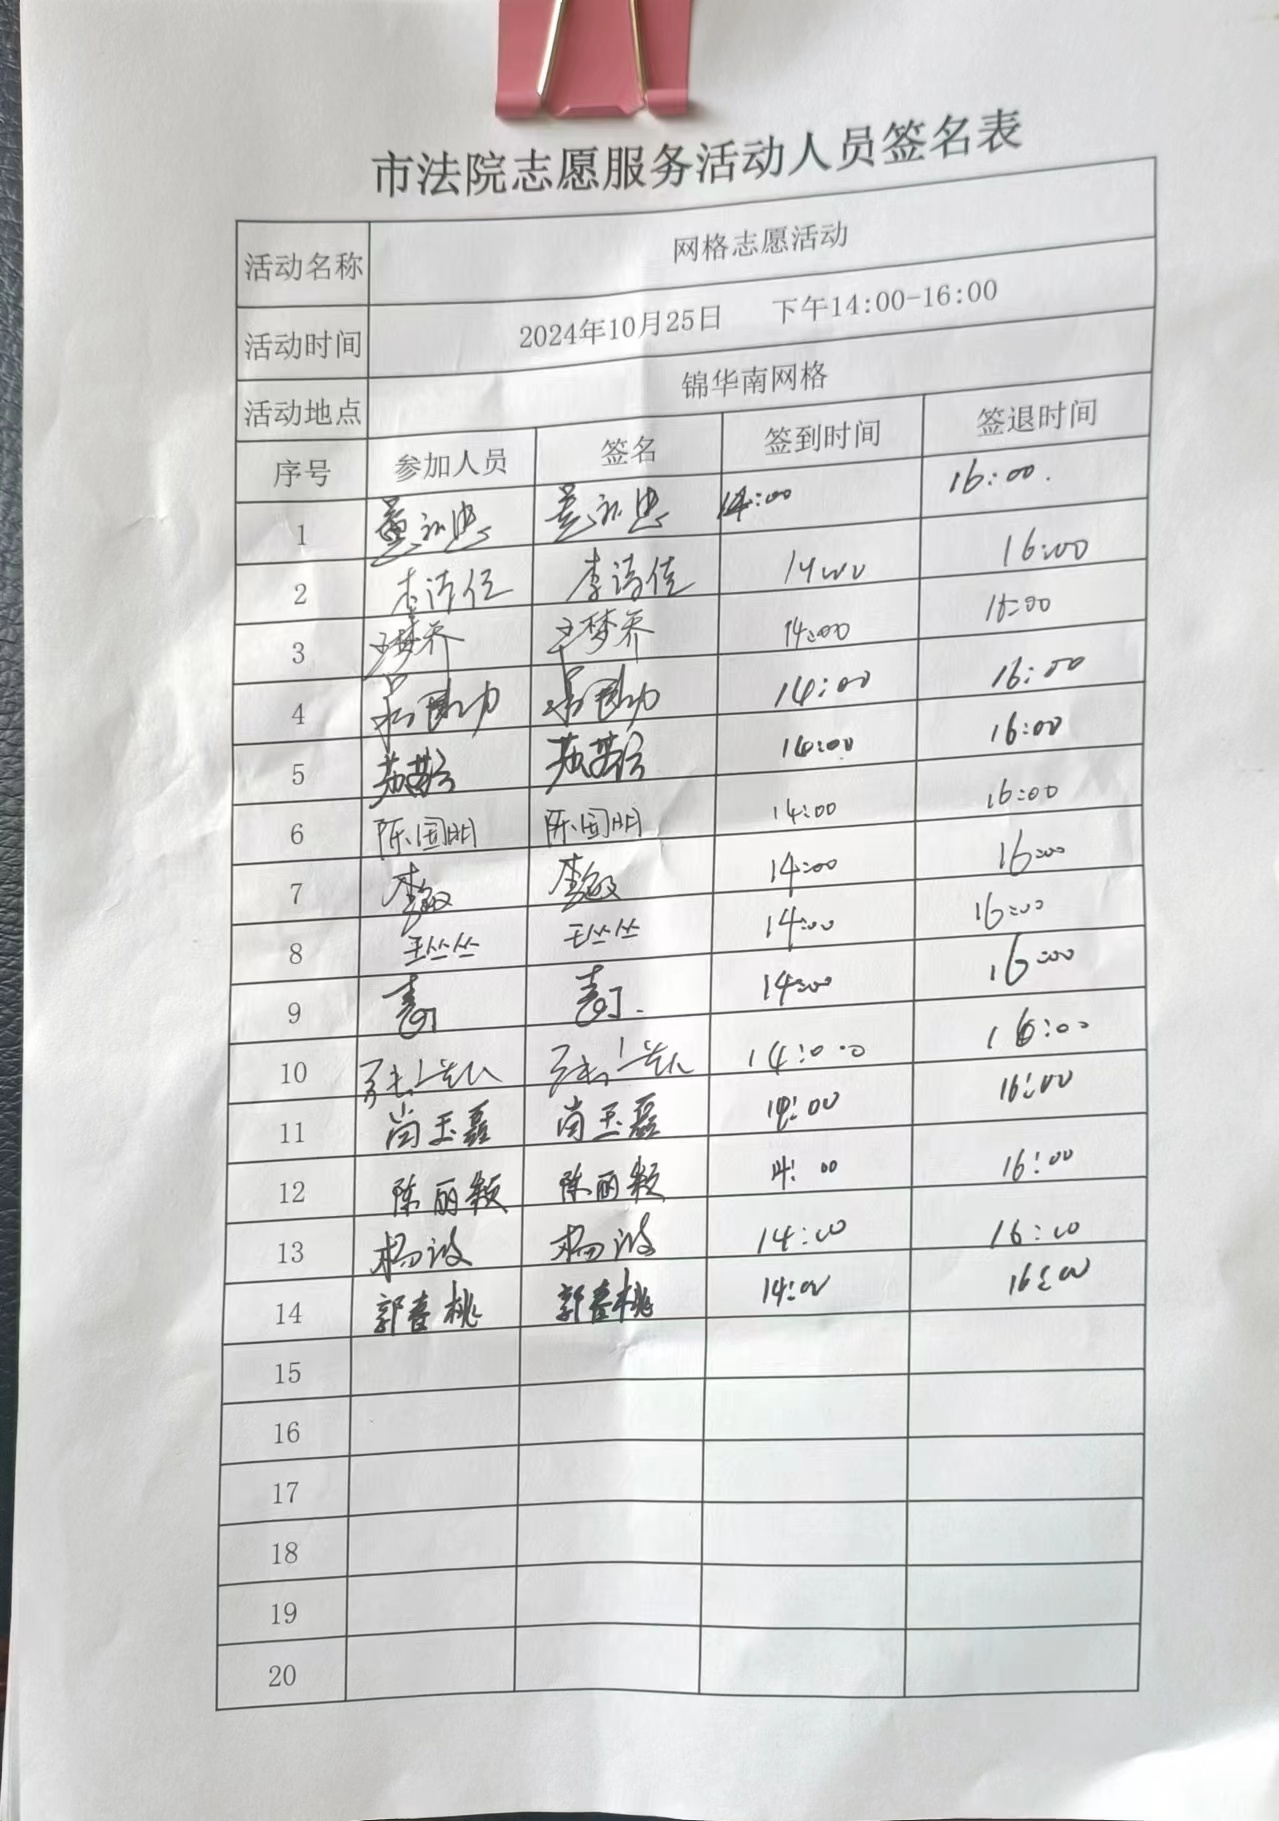 市法院志愿服务活动人员签名表
活动名称 网格志愿活动
活动时间 2024年10月25日 下午14:00-16:00
活动地点 锦华南网格
序号 参加人员 签名 签到时间 签退时间
1 董永忠 董永忠 14:00 16:00.
2 李诗佳 李诗佳 14:00 16:00
3 王梦乔 王梦乔 14:00 16:00
4 14:00 16:00
5 14:00 16:00
6 陈国明 陈国明 14:00 16:00
7 李敏 李敏 14:00 16:00
8 王丛丛 王丛丛 14:00 16:00
9 14:00 16:00
10 14:00 16:00
11 尚玉磊 尚玉磊 14:00 16:00
12 陈丽颖 陈丽颖 14:00 16:00
13 杨波 杨波 14:00 16:00
14 郭春桃 郭春桃 14:00 16:00
15
16
17
18
19
20